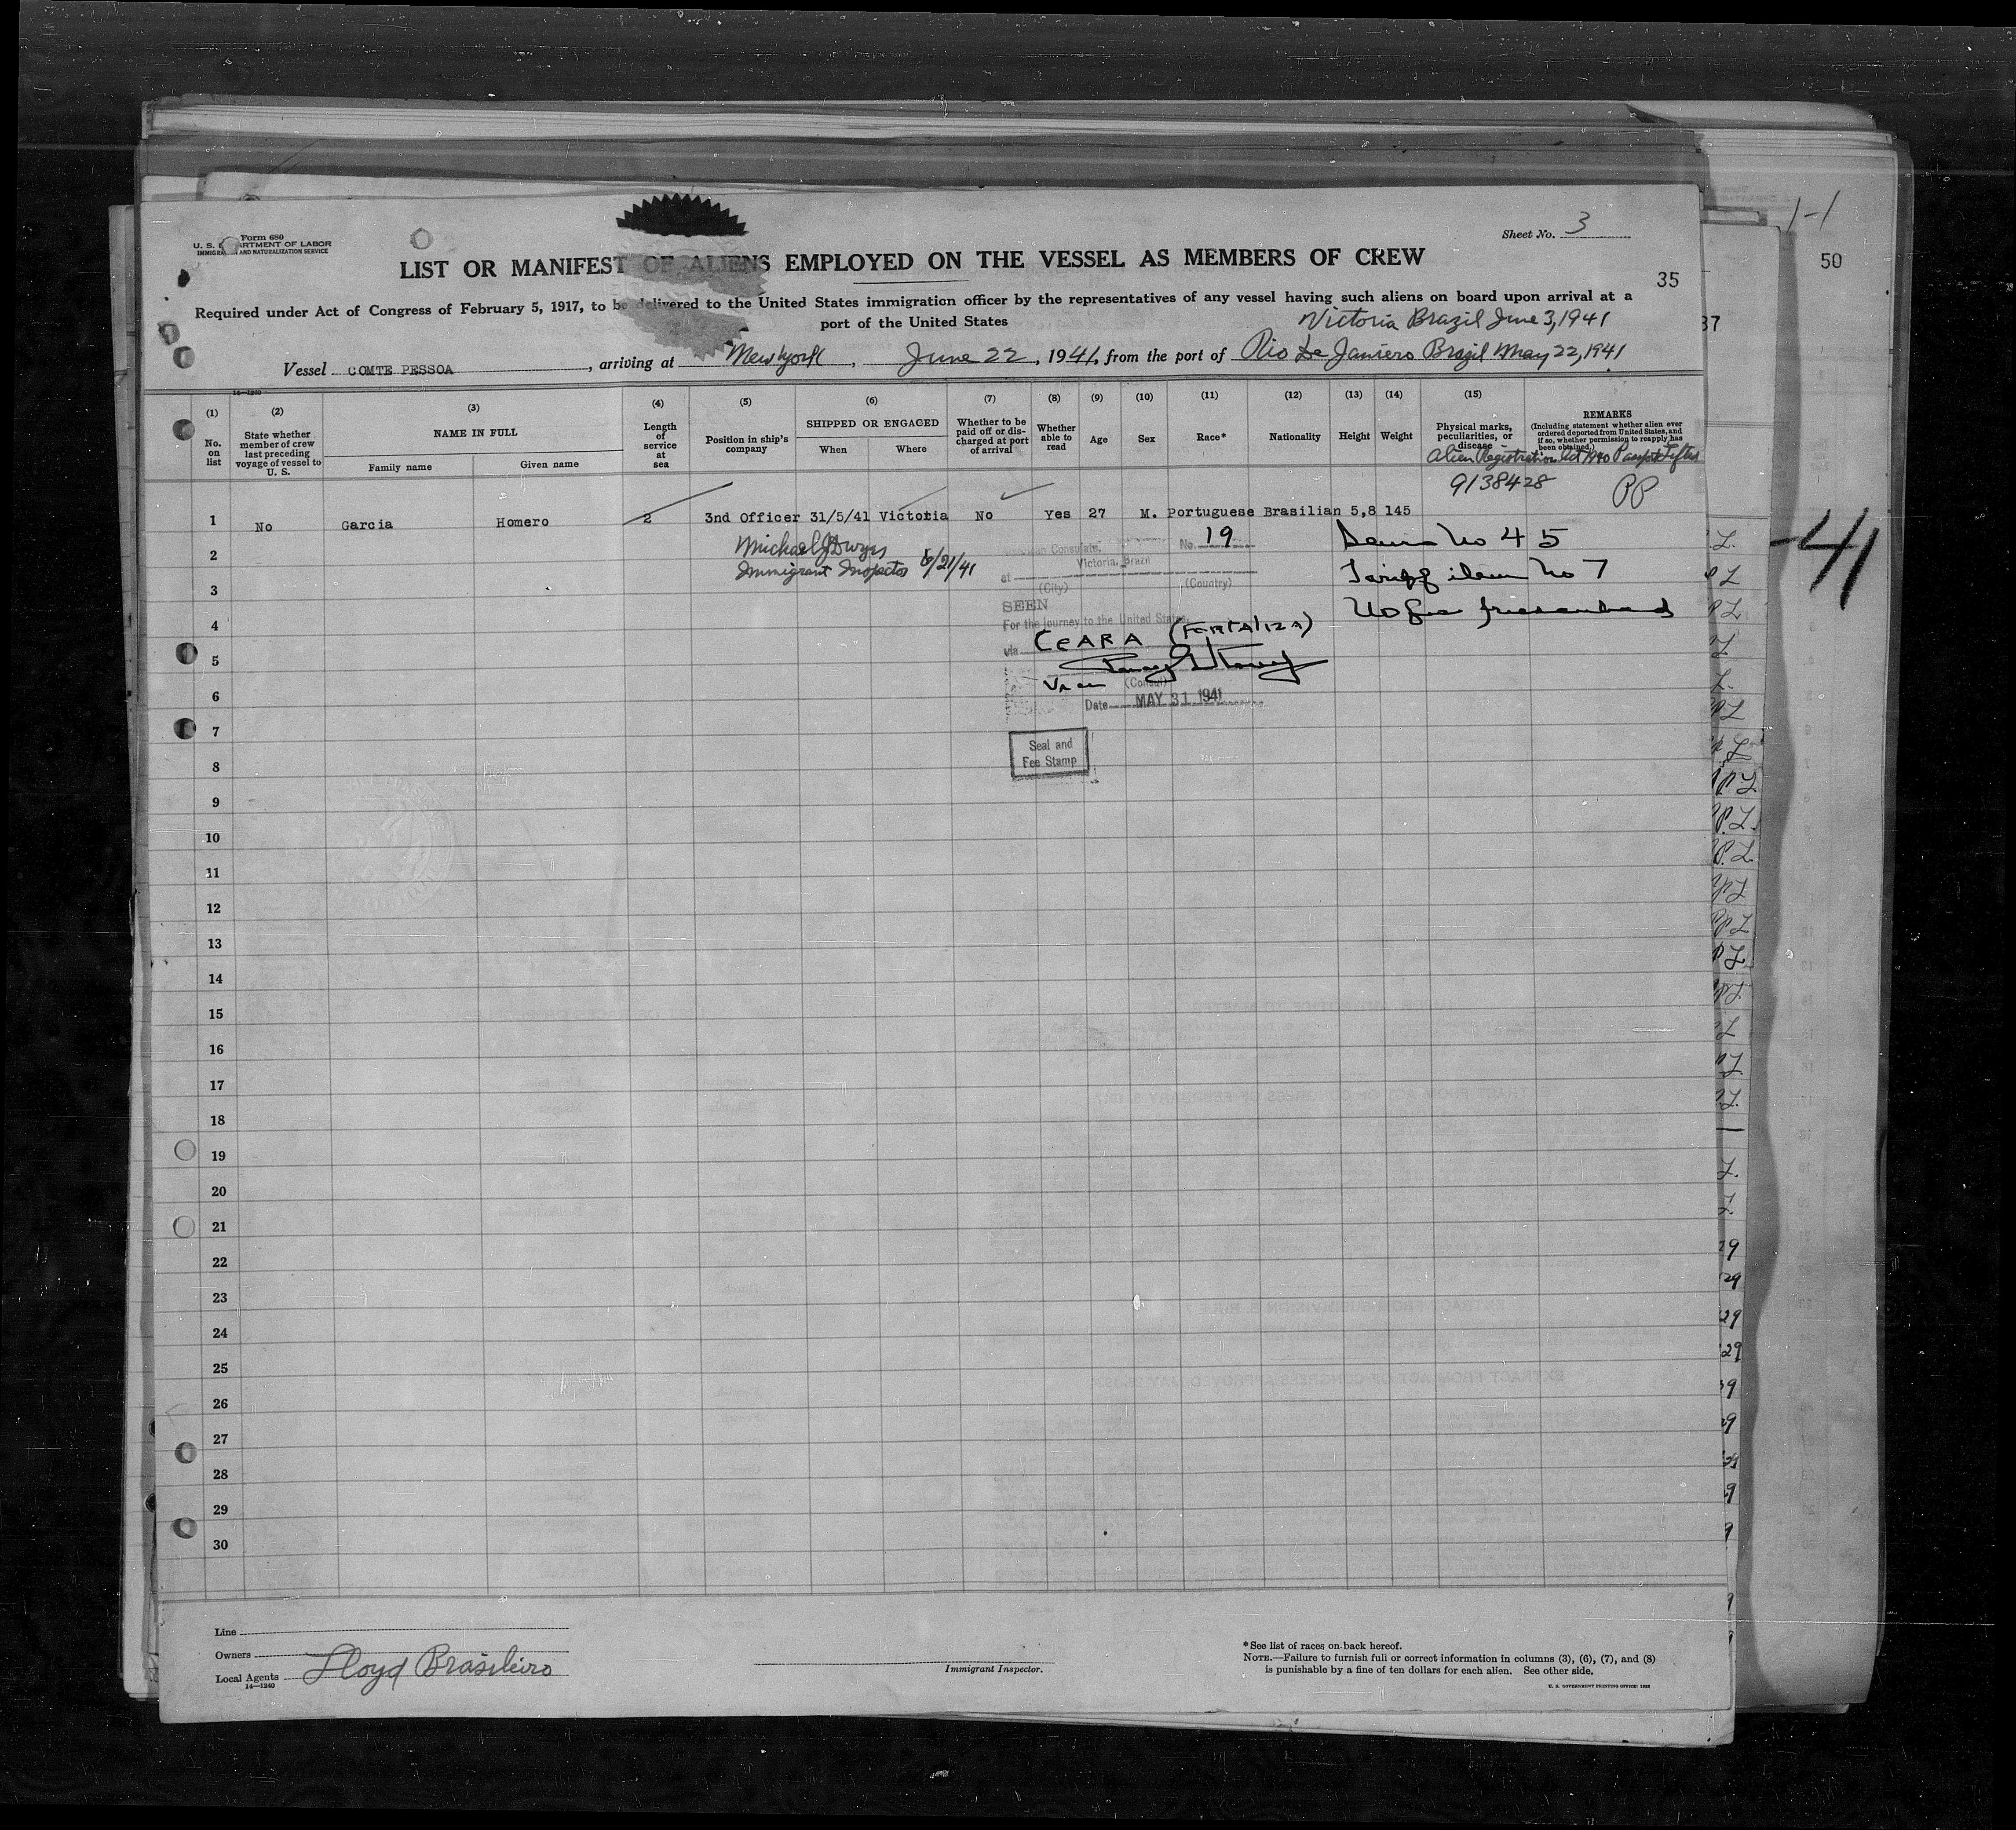 Form 680
U. S. DEPARTMENT OF LABOR
IMMIGRATION AND NATURALIZATION SERVICE
Sheet No. 3
LIST OR MANIFEST OF ALIENS EMPLOYED ON THE VESSEL AS MEMBERS OF CREW
35
Required under Act of Congress of February 5, 1917, to be delivered to the United States immigration officer by the representatives of any vessel having such aliens on board upon arrival at a
port of the United States
Victoria Brazil June 3, 1941
Vessel COMTE PESSOA, arriving at New York, June 22, 1941, from the port of Rio De Janiero Brazil May 22, 1941
14—1240
(1) No. on list
(2) State whether member of crew last preceding voyage of vessel to U. S.
(3) NAME IN FULL
Family name
Given name
(4) Length of service at sea
(5) Position in ship's company
(6) SHIPPED OR ENGAGED
When
Where
(7) Whether to be paid off or discharged at port of arrival
(8) Whether able to read
(9) Age
(10) Sex
(11) Race*
(12) Nationality
(13) Height
(14) Weight
(15) Physical marks, peculiarities, or disease
REMARKS
(Including statement whether alien ever ordered deported from United States, and if so, whether permission to reapply has been obtained.)
Alien Registration Act 1940
9138428 PP
1 No Garcia Homero 2 3nd Officer 31/5/41 Victoria No Yes 27 M. Portuguese Brasilian 5,8 145
Michael J Dwyer
Immigrant Inspector 6/21/41
American Consulate.
No. 19
Victoria, Brazil
at
(City) (Country)
SEEN
For the journey to the United States,
via CEARA (FORTALIZA)
Vice (Consul)
Date MAY 31 1941
Seal and
Fee Stamp
No 45
Tariff item No 7
No fee
2
3
4
5
6
7
8
9
10
11
12
13
14
15
16
17
18
19
20
21
22
23
24
25
26
27
28
29
30
Line
Owners
Local Agents Lloyd Brasileiro
14—1240
Immigrant Inspector.
*See list of races on back hereof.
NOTE.—Failure to furnish full or correct information in columns (3), (6), (7), and (8)
is punishable by a fine of ten dollars for each alien. See other side.
U. S. GOVERNMENT PRINTING OFFICE
1-1
50
37
-41